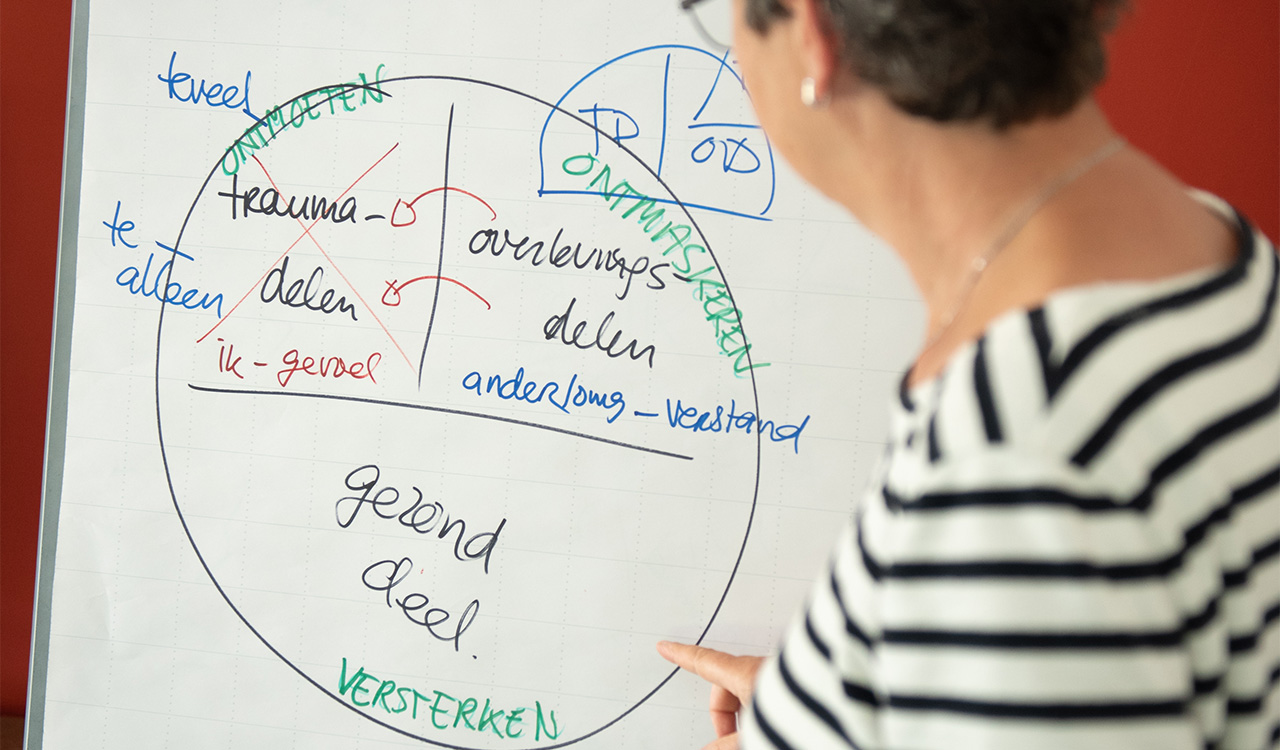 teveel
ONTMOETEN
TD
OD
ONTMASKEREN
trauma-
delen
te
alleen
ik-gevoel
overlevings-
delen
gezond
deel.
VERSTERKEN